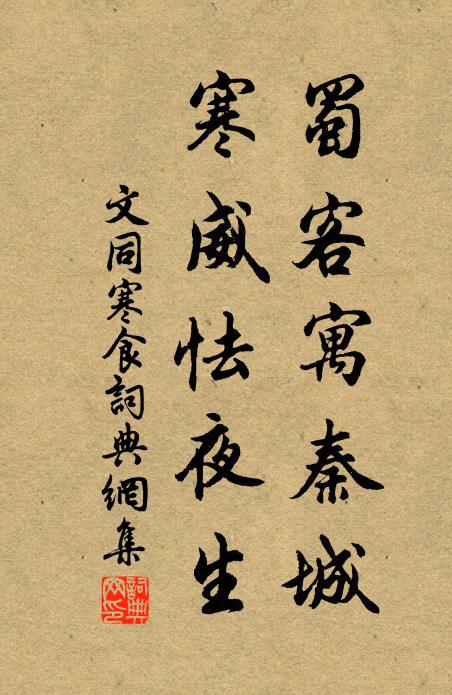 蜀客寓秦城
寒威怯夜生
文同寒食詞典網集
詞典网印